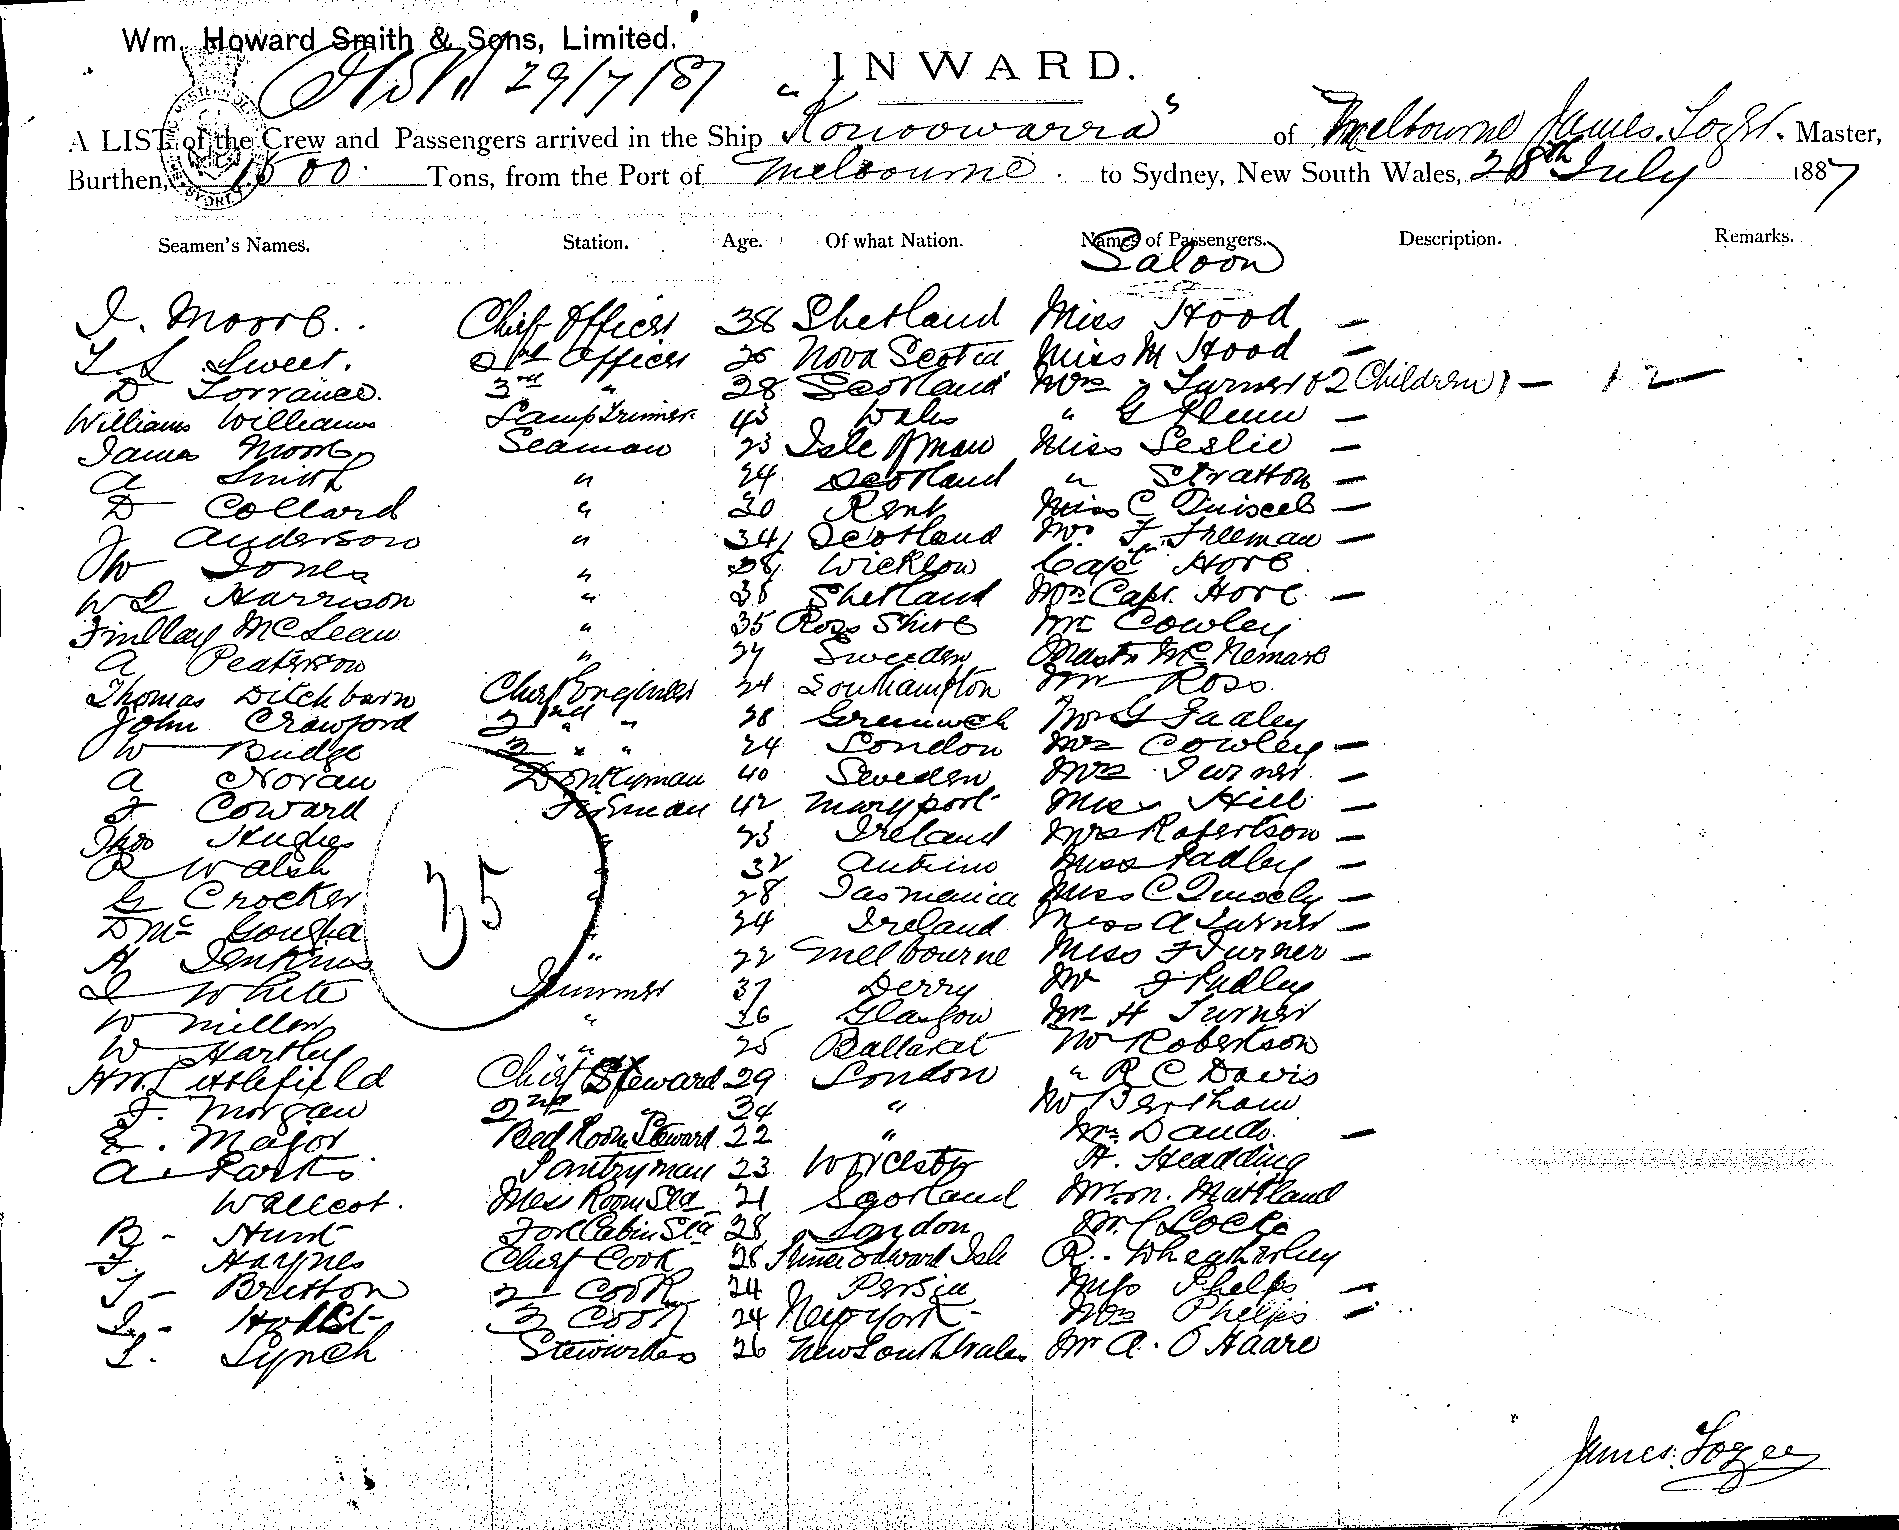 Wm. Howard Smith & Sons, Limited.
29/7/87
INWARD.
A LIST of the Crew and Passengers arrived in the Ship "Konoowarra" of Melbourne James Master,
Burthen, 1500 Tons, from the Port of Melbourne. to Sydney, New South Wales, 28th July 1887
Seamen's Names. Station. Age. Of what Nation. Names of Passengers. Description. Remarks.
Saloon
J. Moore. Chief Officer 38 Shetland Miss Hood —
Sweet. 2nd Officer Nova Scotia Miss M Hood —
D Lorrance. 3rd " 28 Scotland Mrs Turner & 2 Children —
Williams Williams Lamp Trimer 43 Wales " G —
James Moore Seaman 23 Isle of Man Miss Leslie —
A Smith " 24 Scotland " Stratton —
D Collard " 30 Kent Miss C —
J Anderson " 34 Scotland F. Freeman —
W Jones " 28 Wicklow Capt Hore
W J Harrison " 38 Shetland Mrs Capt. Hore —
Findlay McLean " 35 Ross Shire Mr Cowley
A Peaterson " 27 Sweeden
Thomas Ditchbarn Chief Engineer 24 Southampton Mr Ross
John Crawford 2nd " 28 Greenwich Mr G
W Budge 3 " " 24 London Mrs Cowley —
A Noran Donkeyman 40 Sweden Mrs Turner —
J Coward Fireman 42 Maryport Miss Hill —
Thos Hughes " 23 Ireland Mrs Robertson —
R Walsh " 32 Antrim Miss —
35
G Crocker " 28 Tasmania Miss C —
D Mc " 24 Ireland Miss A Turner —
H Jenkins " 22 Melbourne Miss F Turner —
J White Trimmer 37 Derry Mr J
W Miller " 26 Glasgow Mr H Turner
W Hartley " 25 Ballarat Mr Robertson
HW Littlefield Chief Steward 29 London " R C Davis
J. Morgan 2nd " 34 " Mr
E. Major Bed Room Steward 22 " —
A. Parks Pantryman 23 Worcester H. Headding
Wallcot. Mess Room Std 21 Scotland Maitland
B - Hunt Fore Cabin Std 28 London Mr Locke
F. Haynes Chief Cook 28 Prince Edward Isle R. Wheatherley
T - Britton 2 Cook 24 Persia Miss Phelps —
3 Cook 24 New York - Mrs Phelps —
L. Lynch Stewardess 26 New South Wales Mr A. O Haare
James